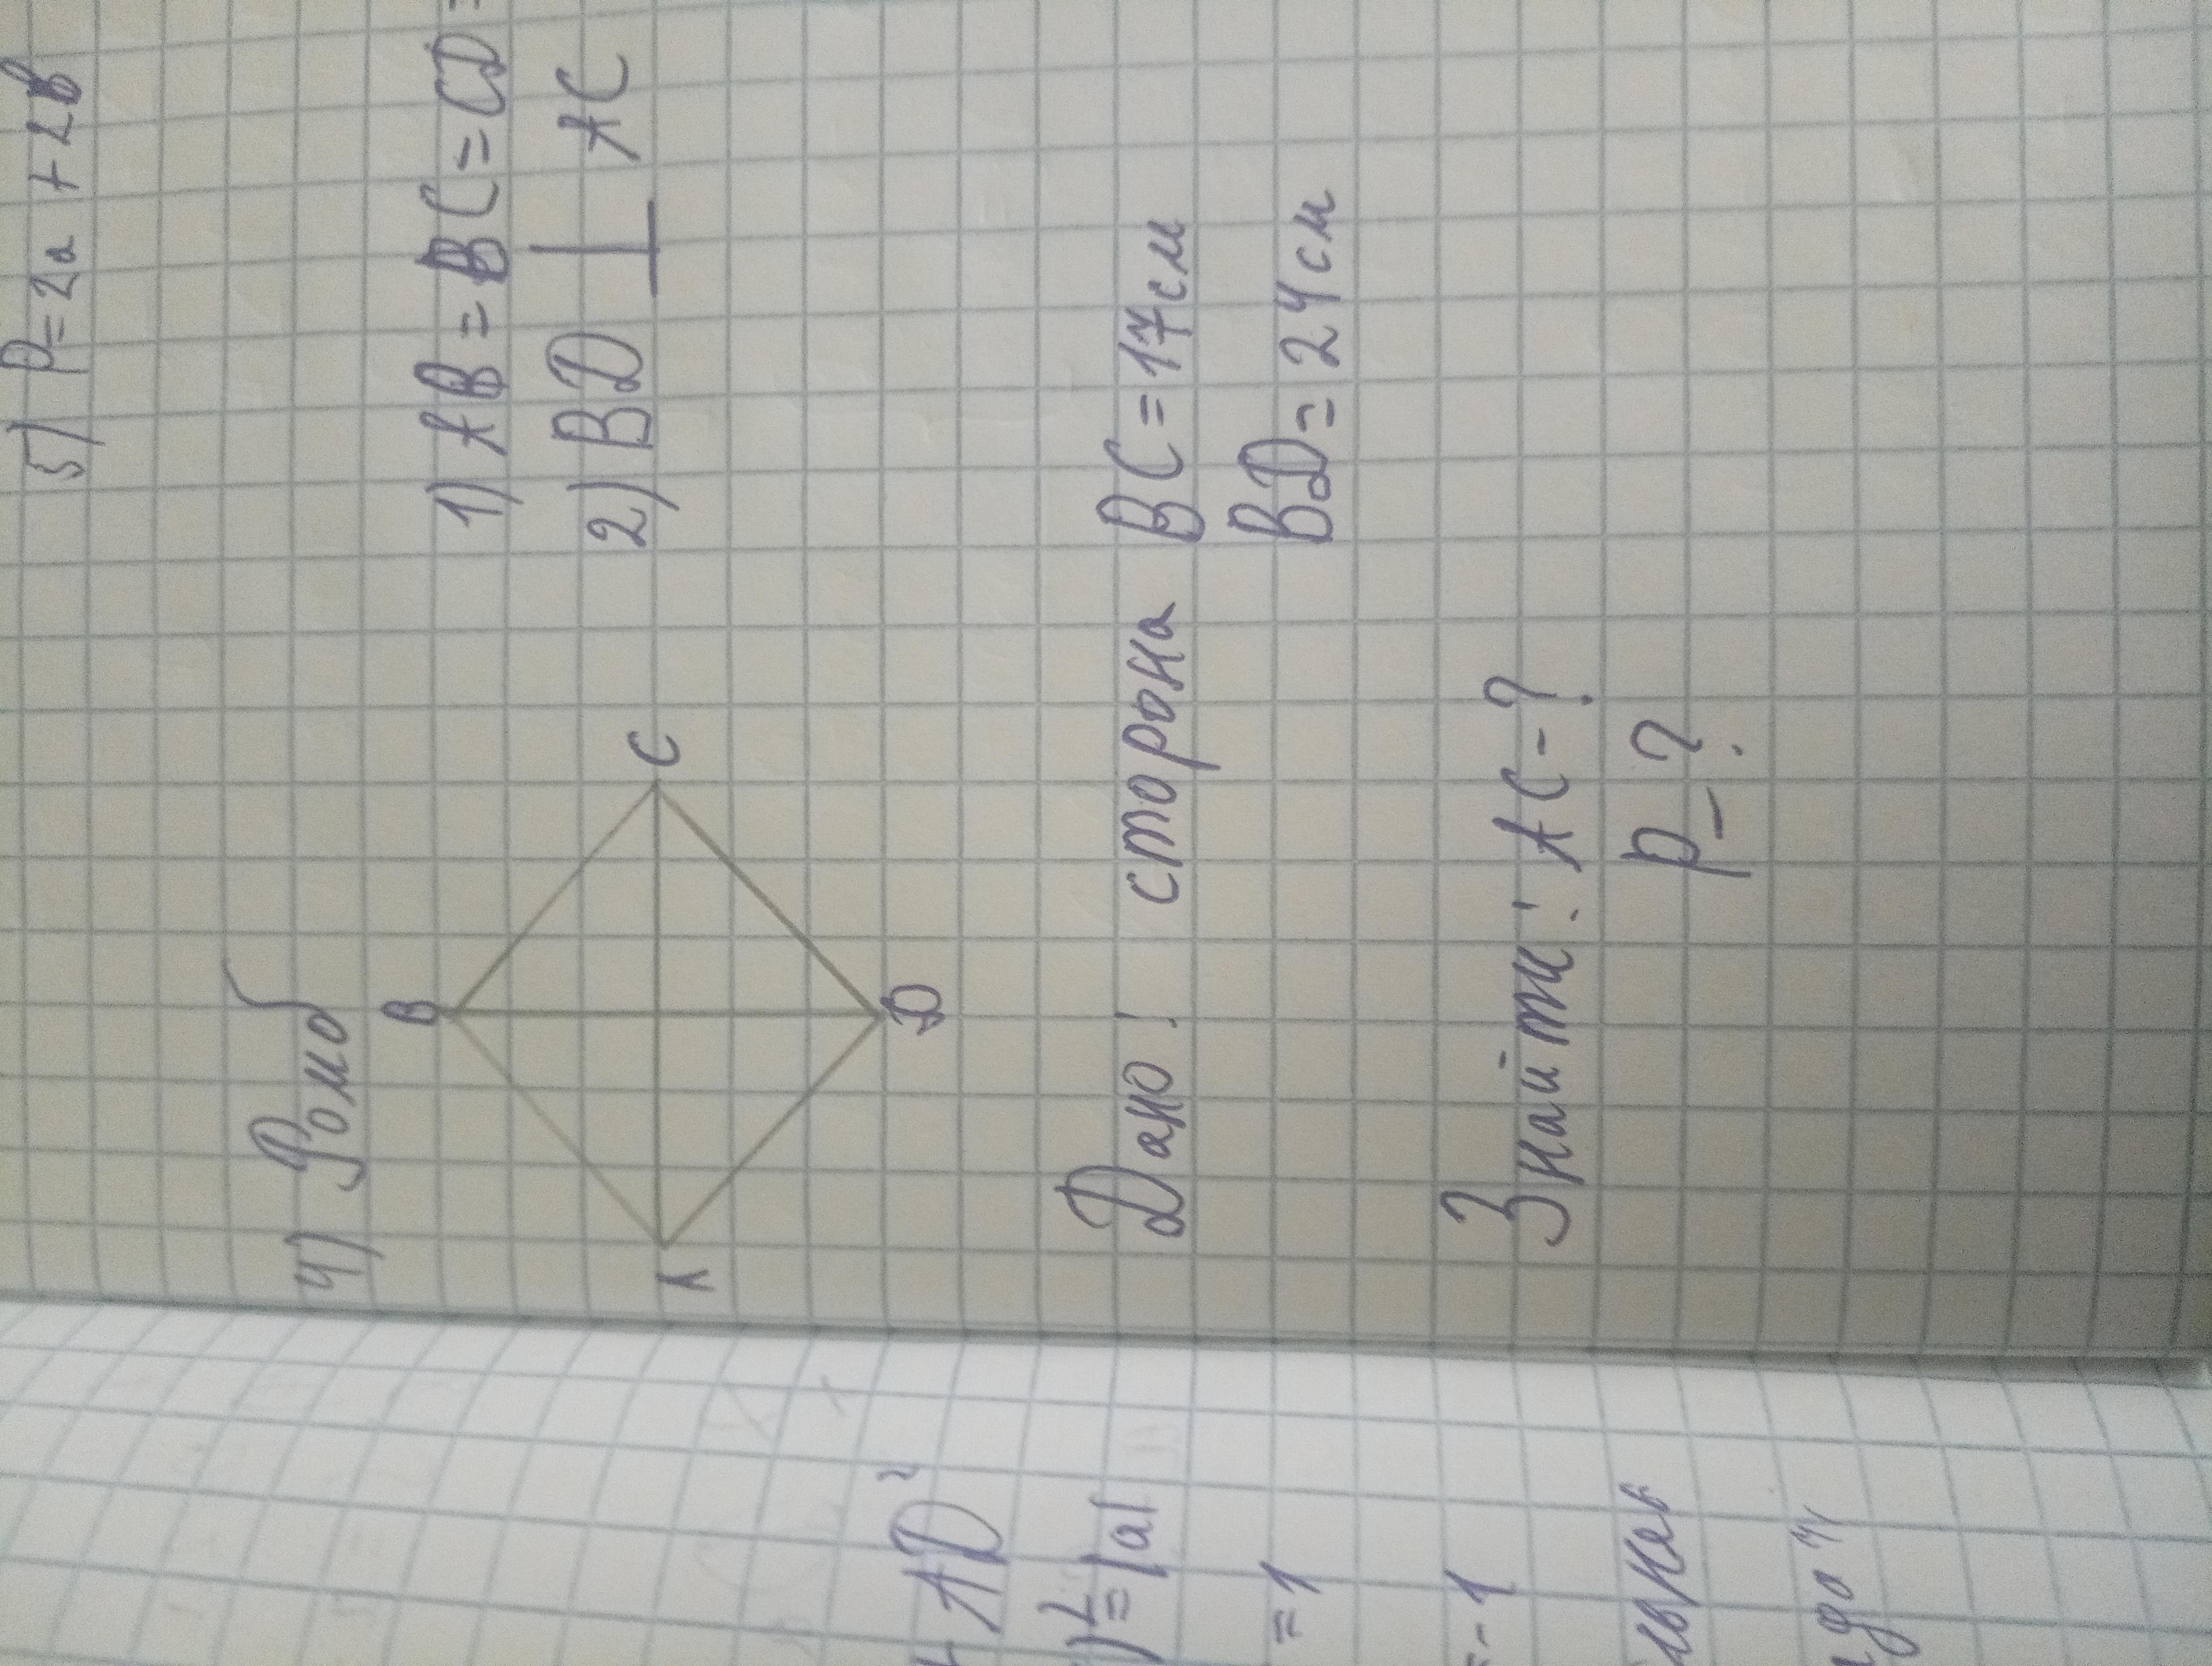 5) P=2a + 2b
4) Ромб
1) AB = BC = CD =
2) BD ⊥ AC
B
C
A
D
Дано: сторона BC = 17см
BD = 24см
Знайти: AC - ?
P - ?
AD²
= |a|
= 1
= - 1